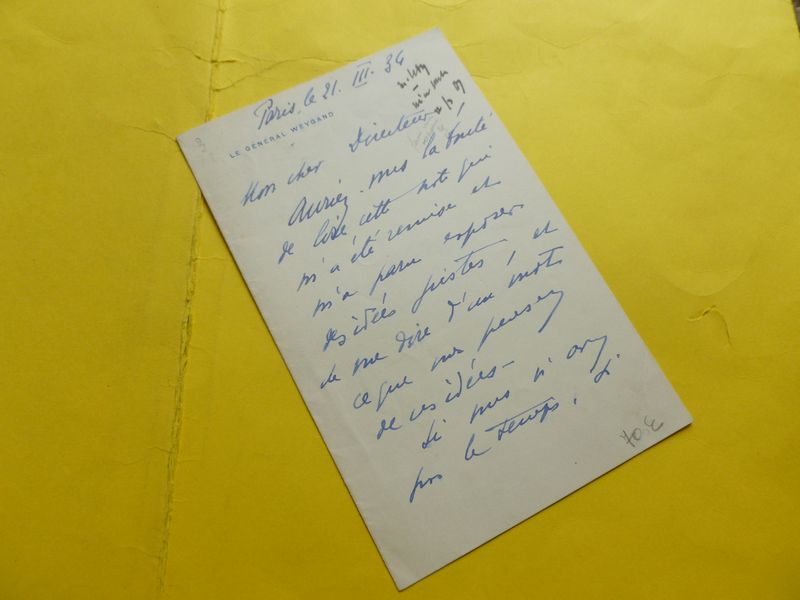 Paris, le 21. III. 34
LE GÉNÉRAL WEYGAND
Mon cher Directeur,
Auriez vous la bonté
de lire cette note qui
m'a été remise et
m'a paru exposer
des idées justes, et
de me dire d'un mot
ce que vous pensez
de ces idées –
Si vous n'avez
pas le temps,